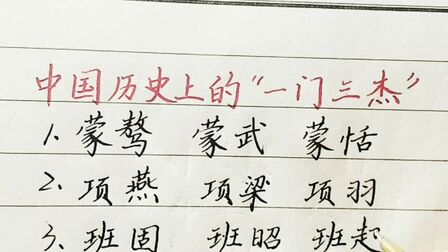 中国历史上的“一门三杰”
1、蒙骜 蒙武 蒙恬
2、项燕 项梁 项羽
3、班固 班昭 班起